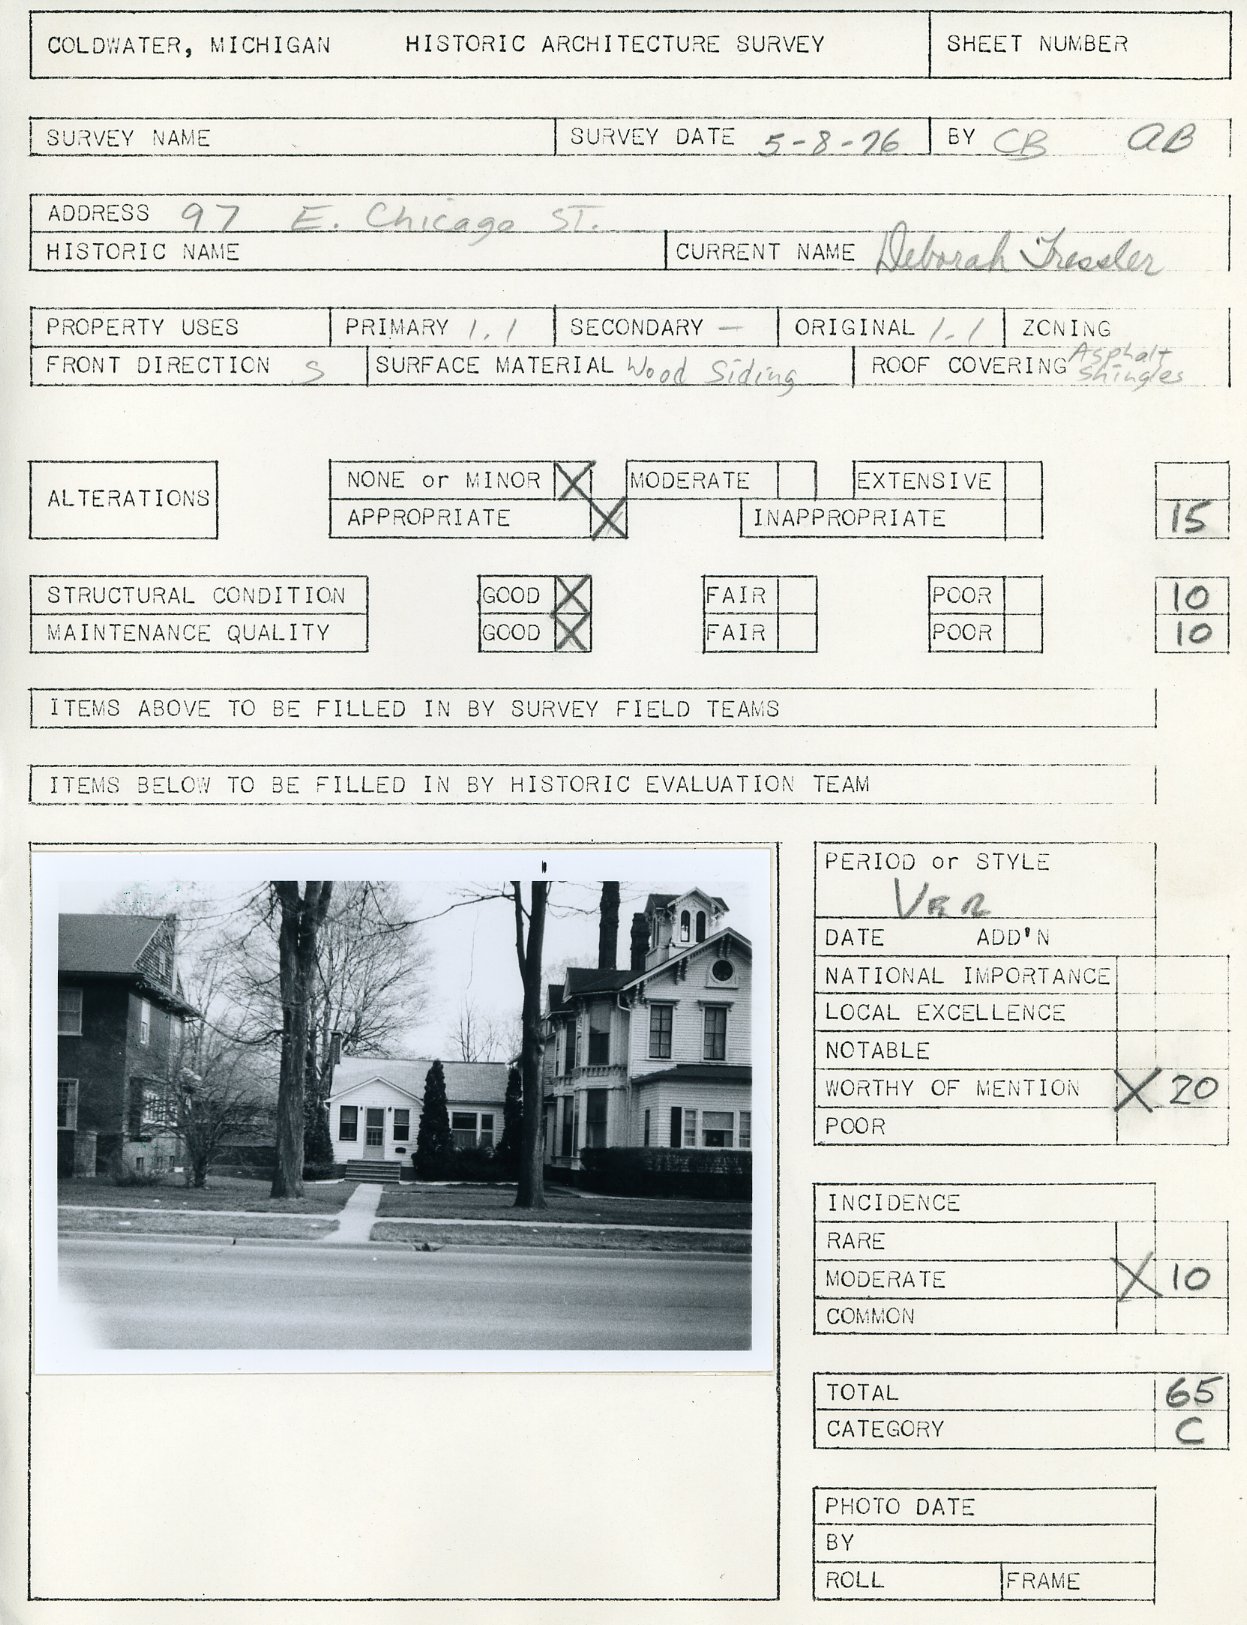 COLDWATER, MICHIGAN HISTORIC ARCHITECTURE SURVEY SHEET NUMBER
SURVEY NAME SURVEY DATE 5-8-76 BY CB AB
ADDRESS 97 E. Chicago ST.
HISTORIC NAME CURRENT NAME Deborah Tressler
PROPERTY USES PRIMARY 1.1 SECONDARY — ORIGINAL 1.1 ZONING
FRONT DIRECTION S SURFACE MATERIAL Wood Siding ROOF COVERING Asphalt Shingles
ALTERATIONS NONE or MINOR X MODERATE EXTENSIVE
APPROPRIATE X INAPPROPRIATE 15
STRUCTURAL CONDITION GOOD X FAIR POOR 10
MAINTENANCE QUALITY GOOD X FAIR POOR 10
ITEMS ABOVE TO BE FILLED IN BY SURVEY FIELD TEAMS
ITEMS BELOW TO BE FILLED IN BY HISTORIC EVALUATION TEAM
PERIOD or STYLE
Ver
DATE ADD'N
NATIONAL IMPORTANCE
LOCAL EXCELLENCE
NOTABLE
WORTHY OF MENTION X 20
POOR
INCIDENCE
RARE
MODERATE X 10
COMMON
TOTAL 65
CATEGORY C
PHOTO DATE
BY
ROLL FRAME